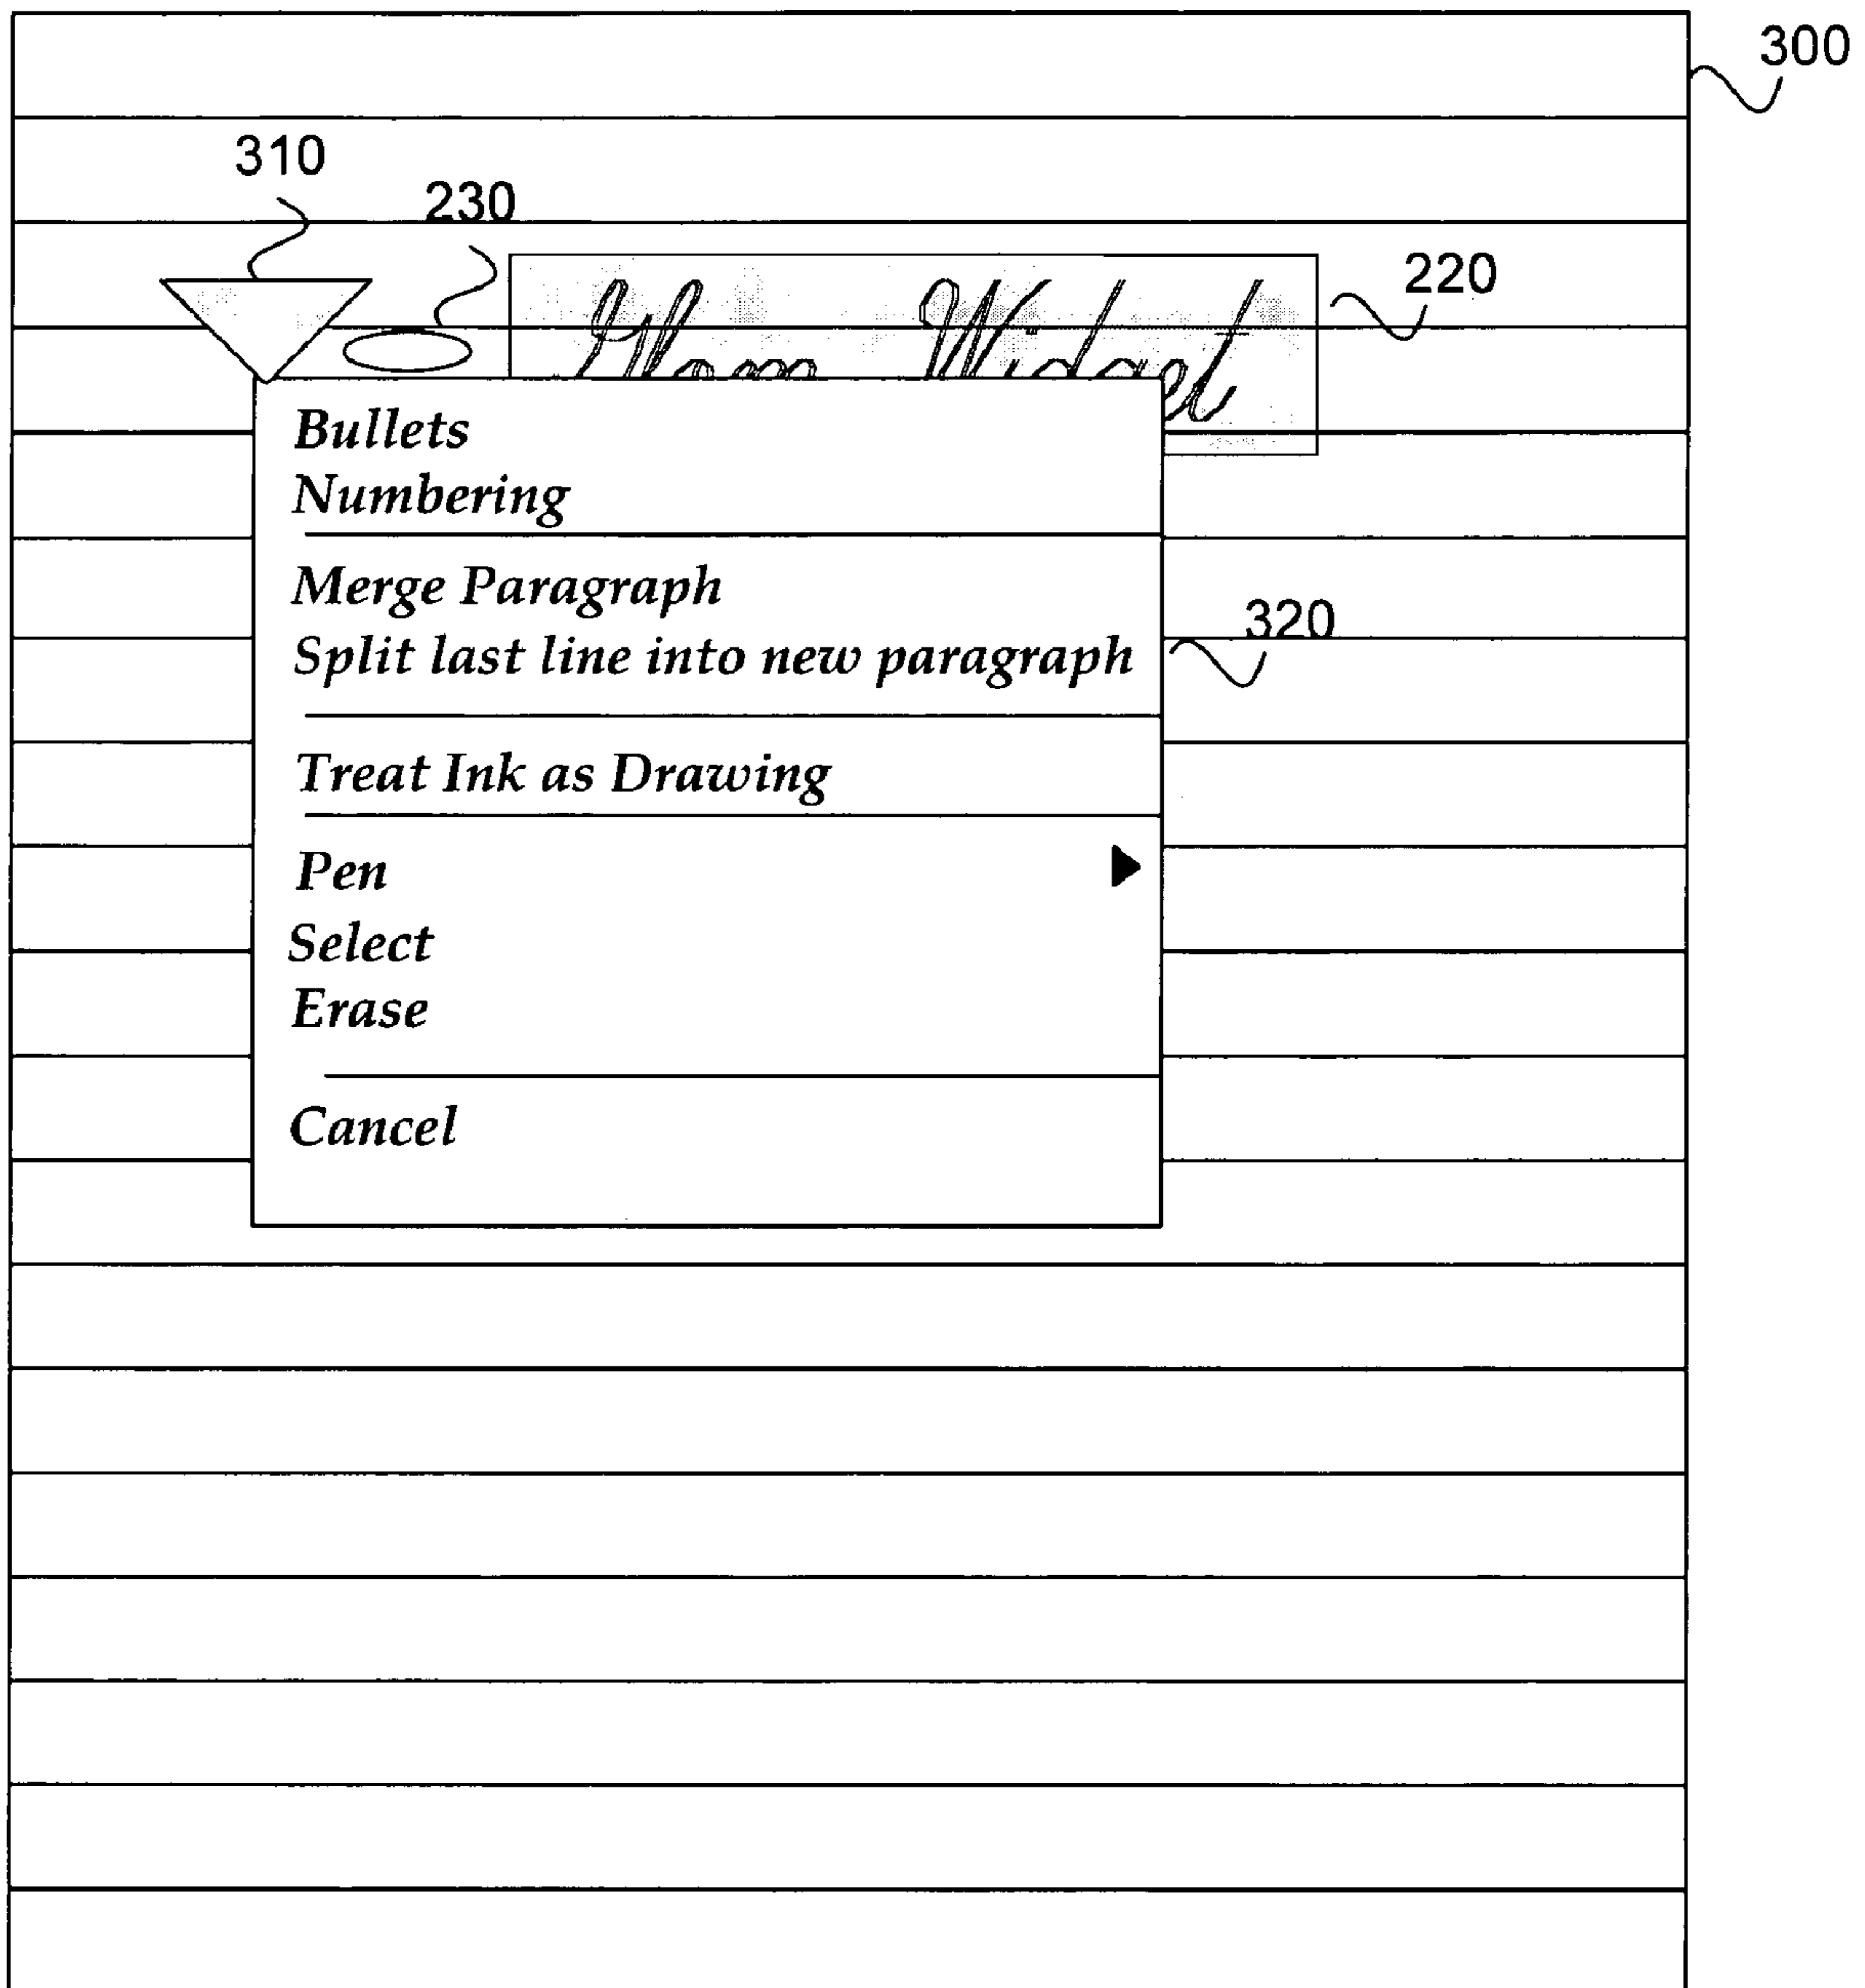 300
310
230
220
Widget
Bullets
Numbering
Merge Paragraph
320
Split last line into new paragraph
Treat Ink as Drawing
Pen
Select
Erase
Cancel